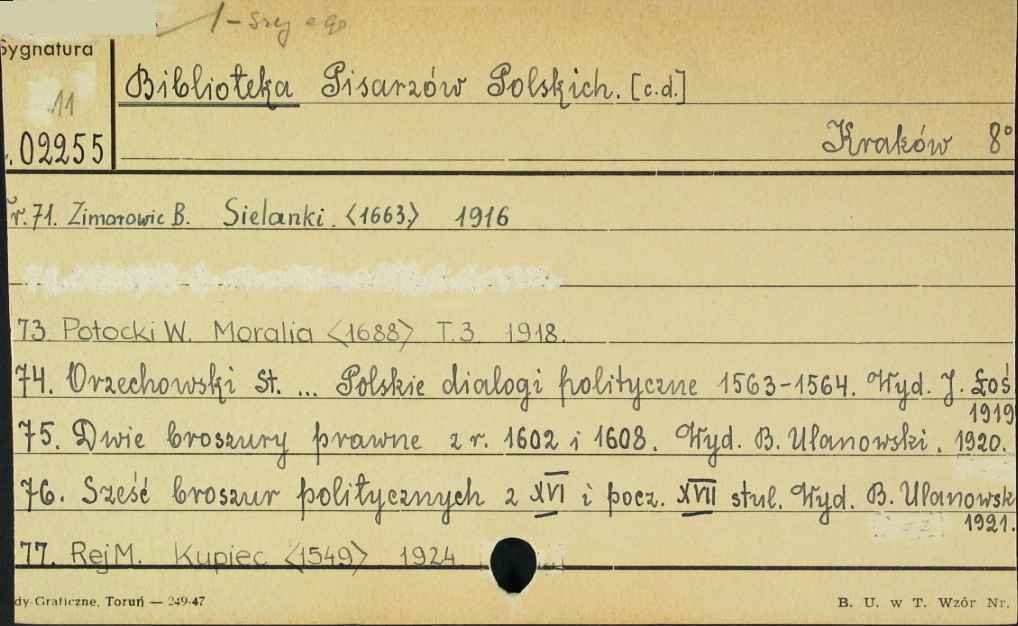 1 -
Sygnatura
11
02255
Biblioteka Pisarzów Polskich. [c.d.]
Kraków 8°
r. 71. Zimorowic B. Sielanki. <1663> 1916
73. Potocki W. Moralia <1688> T.3. 1918.
74. Orzechowski St. ... Polskie dialogi polityczne 1563-1564. Wyd. J. Łoś
1919
75. Dwie broszury prawne z r. 1602 i 1608. Wyd. B. Ulanowski. 1920.
76. Sześć broszur politycznych z XVI i pocz. XVII stul. Wyd. B. Ulanowsk
1921.
77. Rej M. Kupiec <1549> 1924.
dy-Graficzne, Toruń — 249-47
B. U. w T. Wzór Nr.